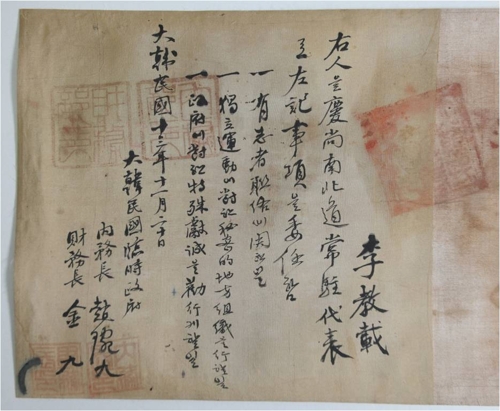 李教載
右人을慶尚南北道常駐代表
로左記事項을委任홈
一 有志者聯絡에関한일
一 獨立運動에對한秘密的地方組織을行할일
一 政府에對한特殊獻誠을勸行케할일
大韓民國十三年十一月二十日
大韓民國臨時政府
內務長 趙琬九
財務長 金九